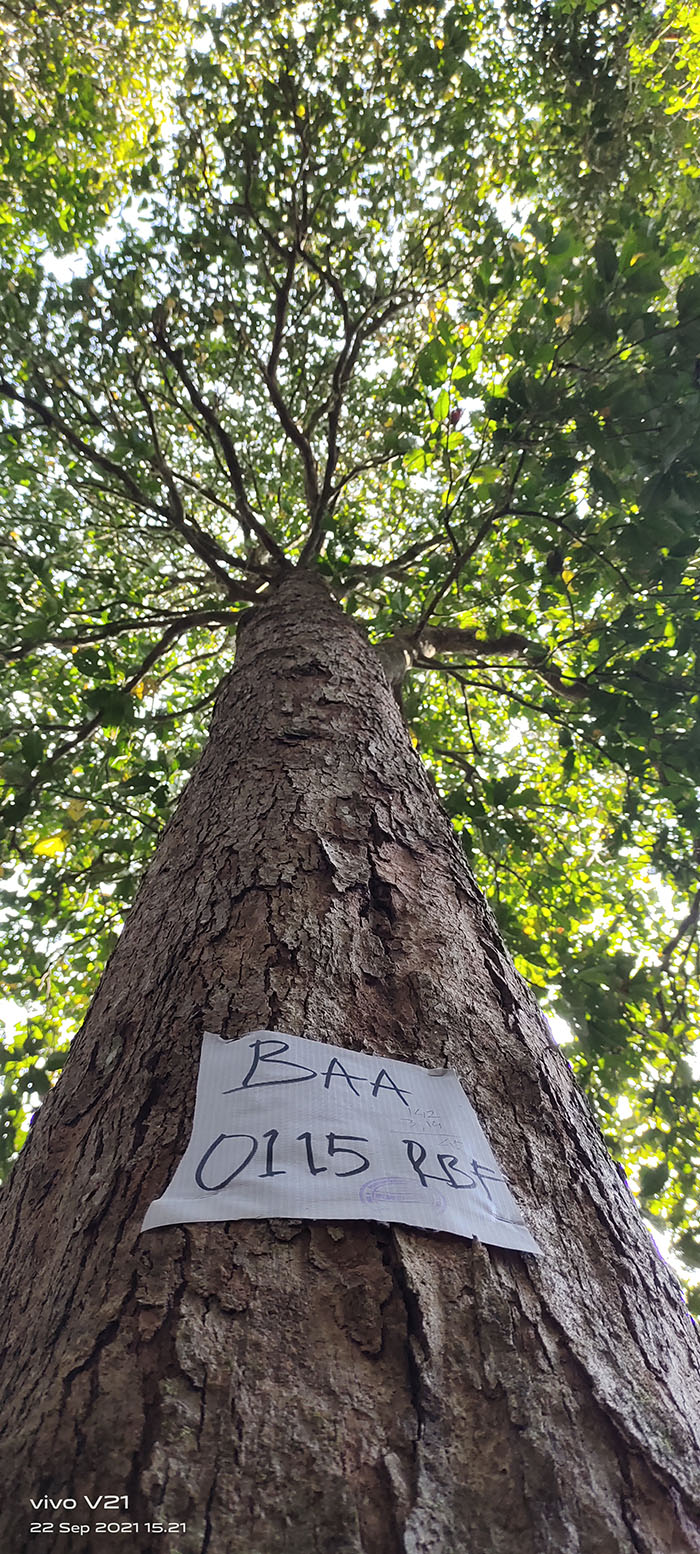 BAA
142
3,14
0115 RBF
vivo V21
22 Sep 2021 15.21